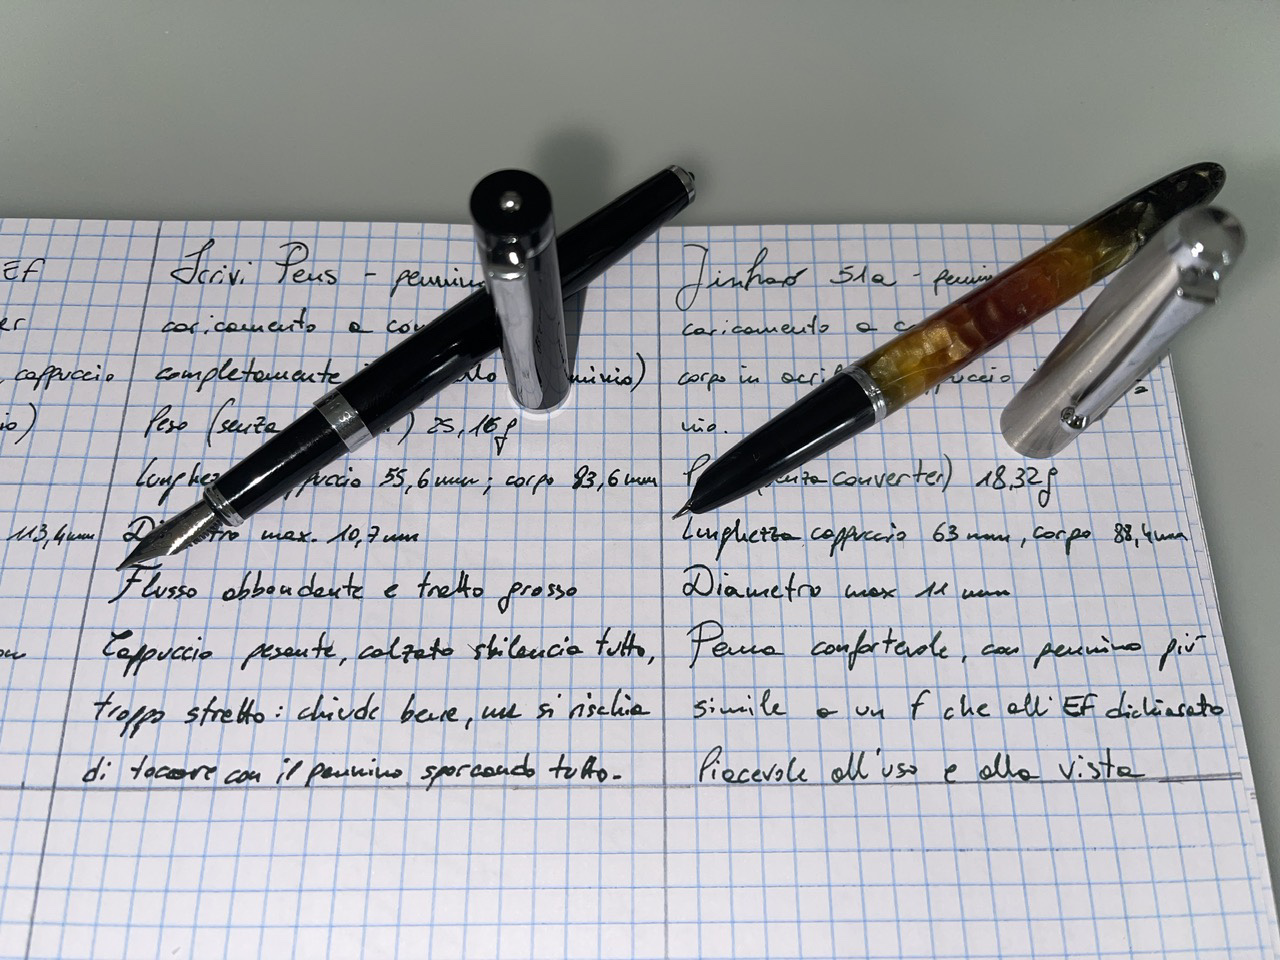 EF
er
, cappuccio
io)
113,4mm
Scrivi Pens - pennino
caricamento a con
completamente
Peso (senza .) 25,16g
Lunghez ppuccio 55,6 mm; corpo 83,6 mm
Di tro max. 10,7 mm
Flusso abbondante e tratto grosso
Cappuccio pesante, calzato sbilancia tutto,
troppo stretto: chiude bene, ma si rischia
di toccare con il pennino sporcando tutto.
Jinhao 51a - pennin
caricamento a c
corpo in acril ppuccio
nio.
P (senza converter) 18,32g
Lunghezza cappuccio 63 mm, corpo 88,4mm
Diametro max 11 mm
Penna confortevole, con pennino più
simile a un f che all'EF dichiarato
Piacevole all'uso e alla vista